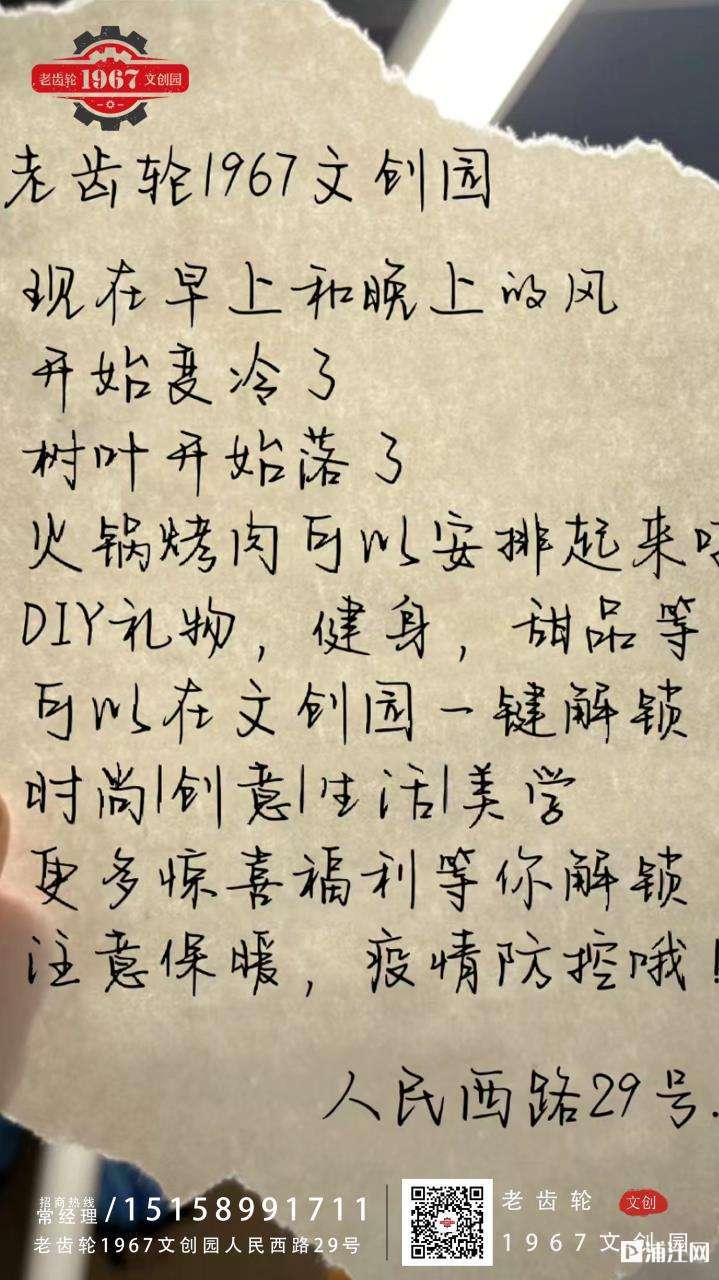 老齿轮 1967 文创园
老齿轮1967文创园
现在早上和晚上的风
开始变冷了
树叶开始落了
火锅烤肉可以安排起来
DIY礼物，健身，甜品等
可以在文创园一键解锁
时尚|创意|生活|美学
更多惊喜福利等你解锁
注意保暖，疫情防控哦！
人民西路29号.
招商热线
常经理/15158991711
老齿轮1967文创园人民西路29号
老齿轮 文创
1967文创园
浦江网